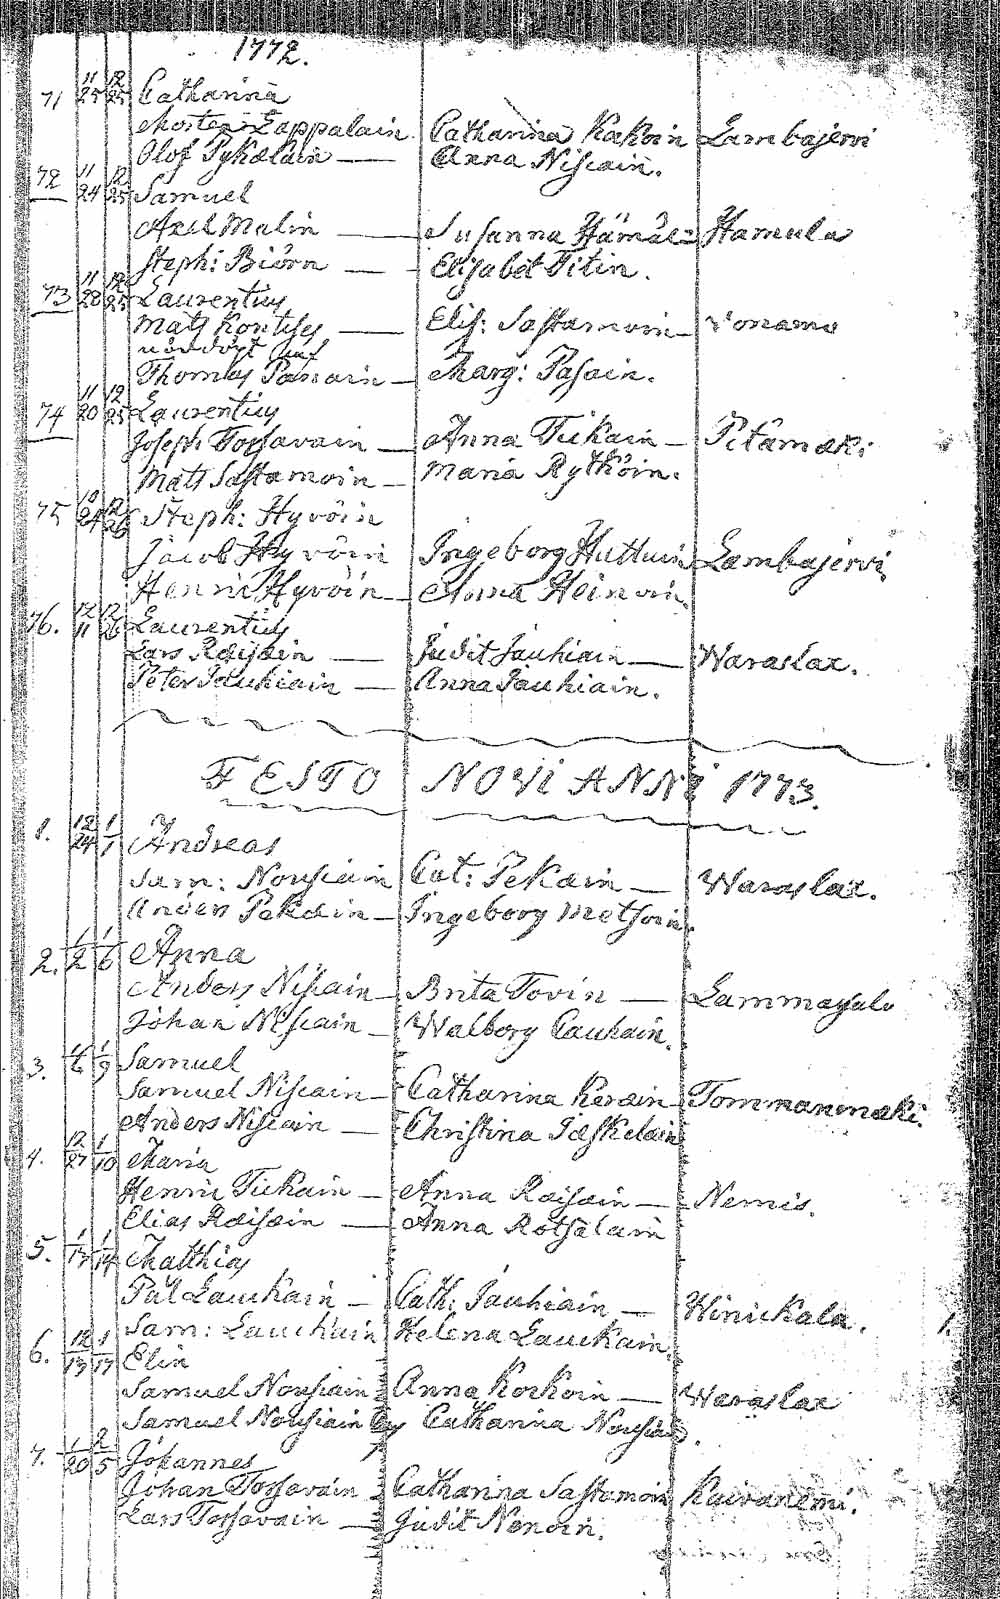 1772.
71 11/25 12/25 Catharina
Morten Lappalain Catharina Kakoin Lambajervi
Olof Pykälain — Anna Niscain.
72 11/24 12/25 Samuel
Axel Malin — Susanna Hämäl= Hamula
Steph: Biörn — Elisabet Titin.
73 11/28 12/25 Laurentius
Mats Kontus — Elis: Sastamoin — Vonamo
Thomas Pasain — Marg: Pasain.
74 11/20 12/25 Laurentius
Joseph Torsavain — Anna Tiikain — Pitämäki
Mats Sastamoin — Maria Rytköin.
75 10/24 12/26 Steph: Hyvöin
Jacob Hyvöin Ingeborg Huttuin Lambajervi
Henric Hyvöin — Anna Heinoin.
76. 12/11 12/26 Laurentius
Lars Räisäin — Judit Jauhiain — Waraslax.
Peter Jauhiain — Anna Jauhiain.
FESTO NOVI ANNI 1773.
1. 12/24 1/1 Andreas
Sam: Nousiain Cat: Pekäin — Waraslax.
Anders Pekäin — Ingeborg Metsoin.
2. 1/2 1/6 Anna
Anders Niscain — Brita Tovin — Lammasalo
Johan Niscain — Walborg Cauhain.
3. 1/6 1/9 Samuel
Samuel Niscain — Catharina Keräin — Tommanmäki.
Anders Niscain — Christina Jäskeläin
4. 12/27 1/10 Maria
Henric Tiikain — Anna Räisäin — Nemis.
Elias Räisäin — Anna Rotsalain
5. 1/13 1/14 Matthias
Pål Laukain — Cath: Jauhiain — Hinickala.
Sam: Laukain Helena Laukain.
6. 12/13 1/17 Elin
Samuel Nousiain Anna Korkoin — Waraslax
Samuel Nousiain Catharina Nousiain.
7. 1/20 2/5 Johannes
Johan Torsavain — Catharina Sastamoin Kaivanemi.
Lars Torsavain — Judit Nenoin.